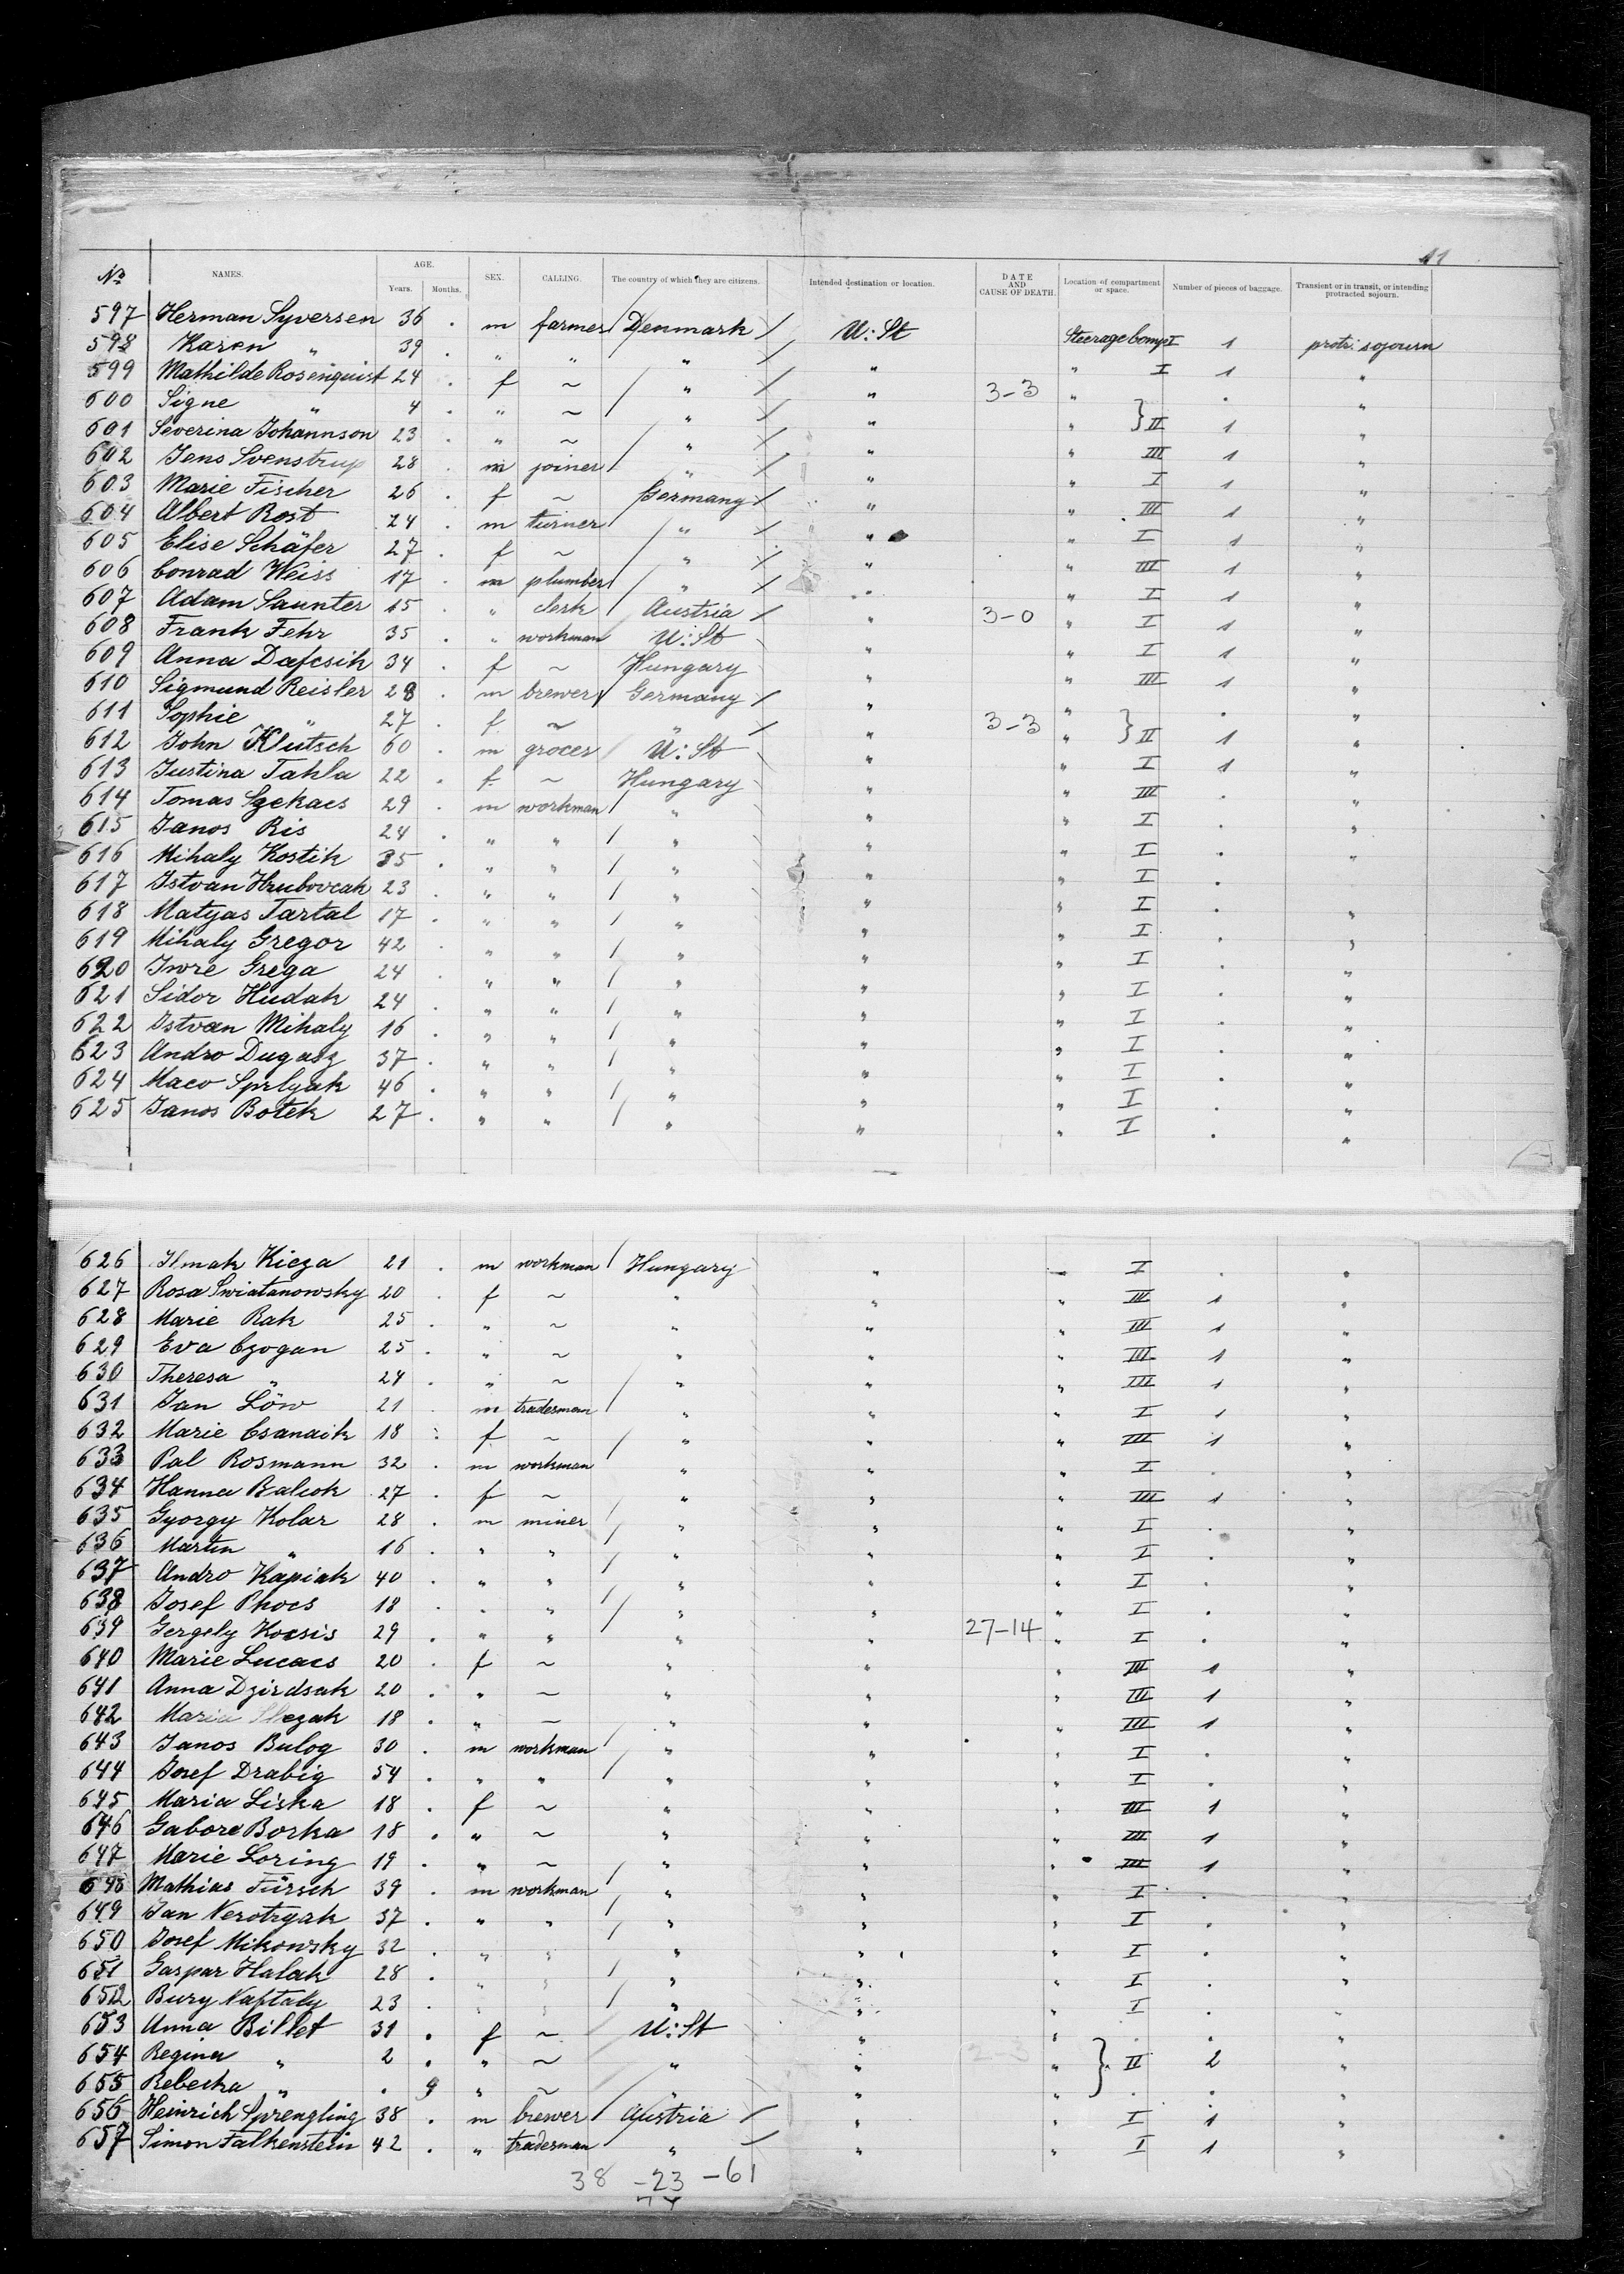 11
No NAMES. AGE. Years. Months. SEX. CALLING. The country of which they are citizens. Intended destination or location. DATE AND CAUSE OF DEATH. Location of compartment or space. Number of pieces of baggage. Transient or in transit, or intending protracted sojourn.
597 Herman Syversen 36 . m farmer / Denmark / U: St Steerage Comp I 1 protr: sojourn
598 Karen " 39 . " " " / " " I 1 "
599 Mathilde Rosenquist 24 . f ~ / " / " 3-3 " . "
600 Signe " 4 . " ~ " / " " } II 1 "
601 Severina Johannson 23 . " ~ / " / " " III 1 "
602 Jens Svenstrup 28 . m joiner / " / " " I 1 "
603 Marie Fischer 26 . f ~ Germany / " " III 1 "
604 Albert Rost 24 . m turner / " / " " I 1 "
605 Elise Schäfer 27 . f ~ / " / " " III 1 "
606 Conrad Weiss 17 . m plumber / " / " " I 1 "
607 Adam Saunter 15 . " clerk / Austria / " 3-0 " I 1 "
608 Frank Fehr 35 . " workman U: St " " I 1 "
609 Anna Dafcsik 34 . f ~ Hungary " " III 1 "
610 Sigmund Reisler 28 . m brewer / Germany / " " . "
611 Sophie " 27 . f ~ " / " 3-3 " } II 1 "
612 John Klutsch 60 . m grocer / U: St " " I 1 "
613 Justina Tahla 22 . f ~ Hungary " " III . "
614 Tomas Szekacs 29 . m workman / " " " I . "
615 Janos Ris 24 . " " / " " " I . "
616 Mihaly Kostik 35 . " " / " " " I .
617 Istvan Hrubovcak 23 . " " / " " " I . "
618 Matyas Tartal 17 . " " / " " " I . "
619 Mihaly Gregor 42 . " " / " " " I . "
620 Imre Grega 24 . " " / " " " I . "
621 Sidor Hudak 24 . " " / " " " I . "
622 Istvan Mihaly 16 . " " / " " " I . "
623 Andro Dugasz 37 . " " / " " " I . "
624 Maco Sprlyak 46 . " " / " " " I . "
625 Janos Botek 27 . " " / " " " I . "
626 Kieza 21 . m workman / Hungary " I . "
627 Rosa Swiatanowsky 20 . f ~ " " " III 1 "
628 Marie Rak 25 . " ~ " " " III 1 "
629 Eva Czogan 25 . " ~ " " " III 1 "
630 Theresa " 24 . " ~ / " " " III 1 "
631 Jan Löw 21 m tradesman / " " " I 1 "
632 Marie Csanaik 18 . f ~ / " " " III 1 "
633 Pal Rosmann 32 . m workman " " " I . "
634 Hanna Balcok 27 . f ~ / " " " III 1 "
635 Gyorgy Kolar 28 . m miner / " " " I . "
636 Martin " 16 . " " / " " " I . "
637 Andro Kapiak 40 . " " / " " " I . "
638 Josef Phocs 18 . " " / " " " I . "
639 Gergely Kocsis 29 . " " " " 27-14 " I . "
640 Marie Lucacs 20 . f ~ " " " III 1 "
641 Anna Dzirdsak 20 . " ~ " " " III 1 "
642 Maria 18 . " ~ " " " III 1 "
643 Janos Bulog 30 . m workman / " " . " I . "
644 Josef Drabig 54 . " " / " " " I . "
645 Maria Liska 18 . f ~ " " " III 1 "
646 Gabore Borka 18 . " ~ " " " III 1 "
647 Marie Loring 19 . " ~ / " " " III 1 "
648 Mathias Fürsch 39 . m workman / " " " I . "
649 Jan Nerotryak 37 . " " / " " " I . "
650 Josef Mikowsky 32 . " " " " " I . "
651 Gaspar Halak 28 . " " / " " " I . "
652 Bury Naftaly 23 . " " / " " " I . "
653 Anna Billet 31 . f ~ U: St " " . . "
654 Regina " 2 . " ~ " " 2-3 " } II 2 "
655 Rebecka " . 9 " ~ " " " . . "
656 Heinrich Sprengling 38 . m brewer / Austria / " " I 1 "
657 Simon Falkenstein 42 . " tradesman " / " " I 1 "
38 -23 -61